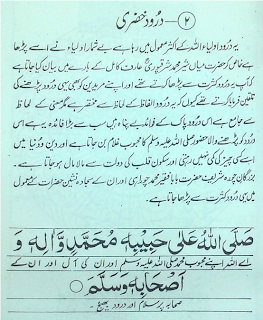 ۲ — درود خضری
یہ درود اولیاء اللہ کے اکثر معمول میں رہا ہے بے شمار اولیاء نے اسے پڑھا
ہے خاص کر حضرت میاں شیر محمد شرقپوری عارف کامل کے بارے میں بیان کیا جاتا ہے
کہ آپ یہ درود کثرت سے پڑھا کرتے تھے اور اپنے مریدین کو بھی یہی درود پڑھنے کی
تلقین فرمایا کرتے تھے کیوں کہ یہ درود الفاظ کے لحاظ سے مختصر ہے مگر معنی کے لحاظ
سے جامع ہے اس درود پاک کے فوائد بے پناہ ہیں سب سے بڑا فائدہ یہ ہے اس
درود کو پڑھنے والا حضور صلی اللہ علیہ وسلم کا محبوب غلام بن جاتا ہے اور دین و دنیا میں
اسے کسی چیز کی کمی نہیں رہتی اور سکون قلب کی دولت سے مالا مال ہو جاتا ہے۔
بزرگان چورہ شریف حضرت بابا فقیر محمد چوراہی اور ان کے سجادہ نشین حضرات کے معمول
میں یہی درود کثرت سے پڑھا جاتا ہے۔
صَلَّى اللهُ عَلٰى حَبِيْبِهٖ مُحَمَّدٍ وَّاٰلِهٖ وَ
اے اللہ اپنے محبوب محمد صلی اللہ علیہ وسلم اور ان کی آل اور ان کے
اَصْحَابِهٖ وَسَلَّمَ
صحابہ پر سلام اور درود بھیج۔